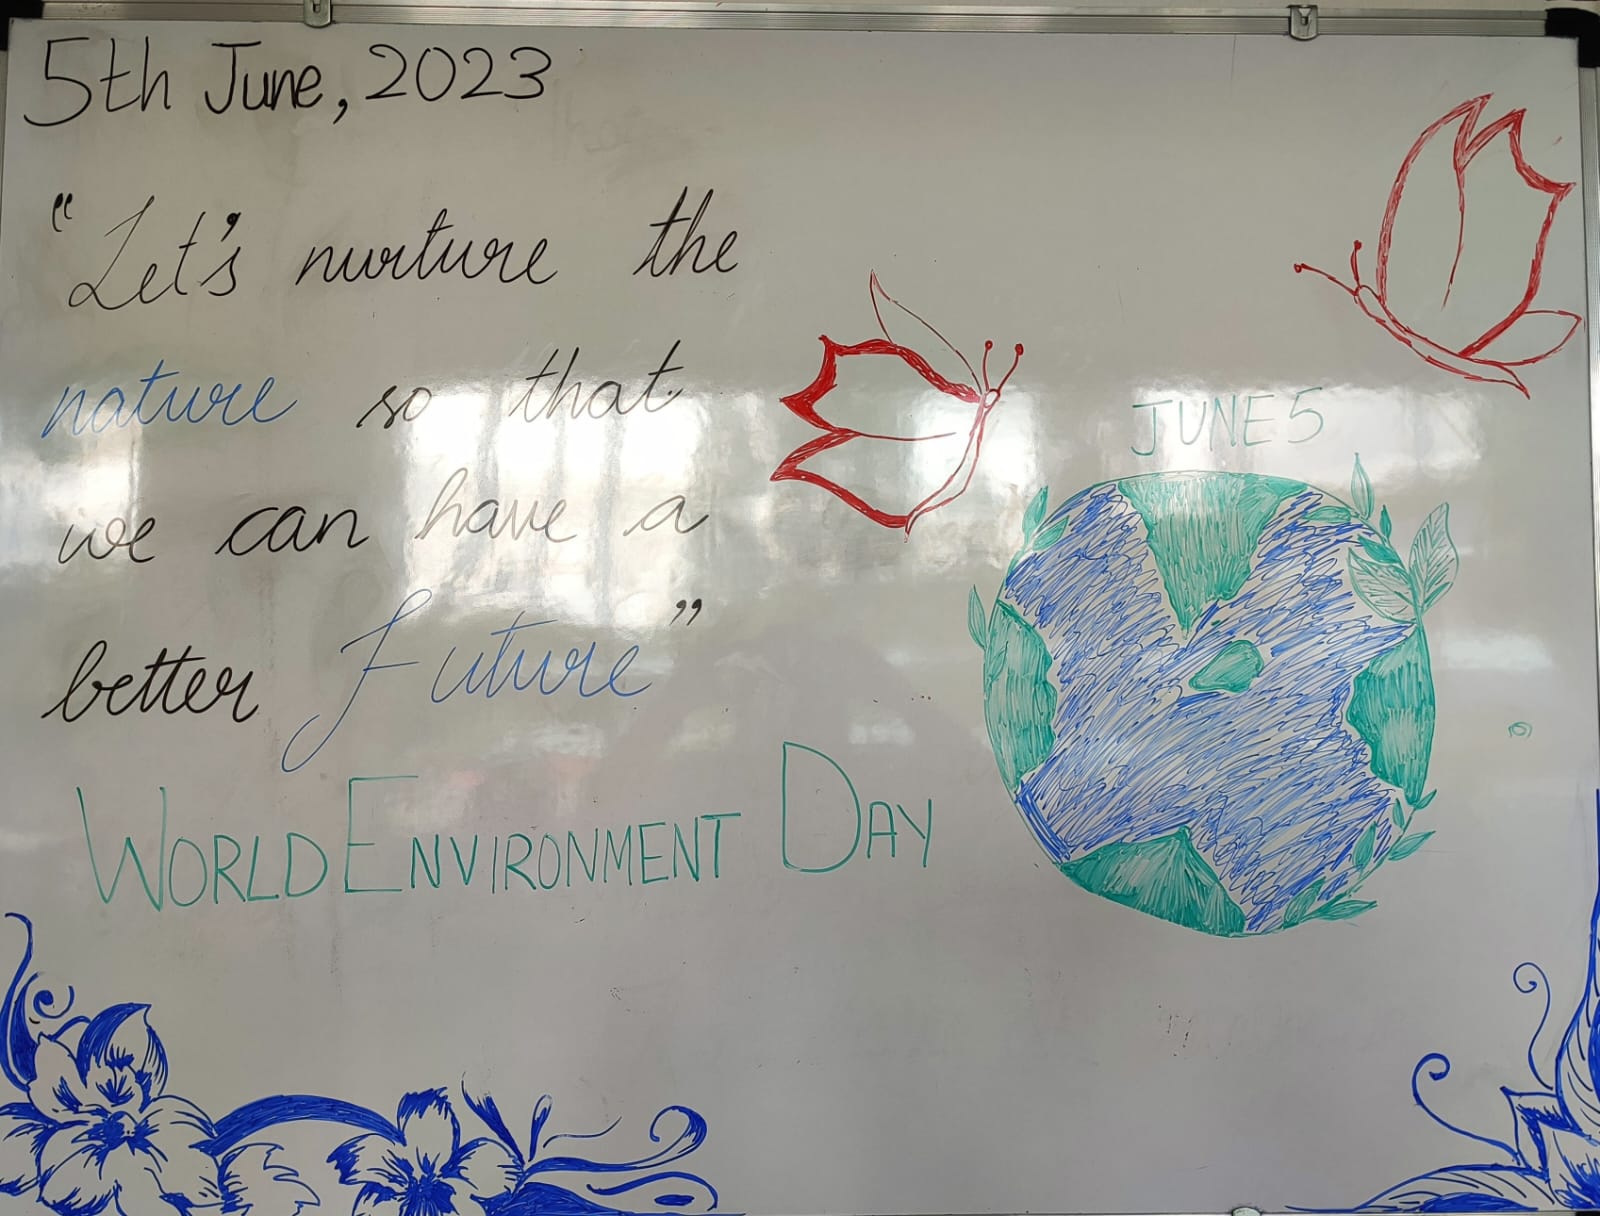 5th June, 2023
"Let's nurture the
nature so that
we can have a
better Future"
WORLD ENVIRONMENT DAY
JUNE 5